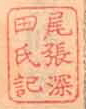 尾張深
田氏記